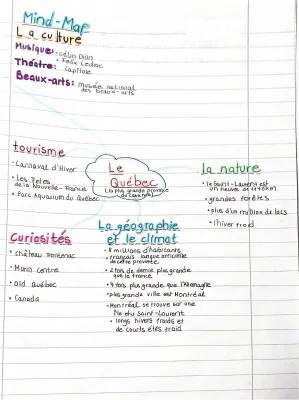 Mind-Map
La culture
Musique: • Célin Dion
• Felix Leclerc
Théatre: • Capitole
Beaux-arts: musée national
des beaux-arts
tourisme
• Carnaval d'Hiver
• Les Fêtes
de la Nouvelle-France
• Parc Aquarium du Québec
Le
Québec
(la plus grande province
la nature
• le Saint-Laurent est
un fleuve de
• grandes forêtes
• plus d'un million de lacs
• l'hiver froid
Curiosités
• château Frontenac
• centre
• old Québec
• Canada
La géographie
et le climat
• 8 millions d'habitants
• français langue officielle
de cette province
• 2 fois de demie plus grande
que la France
• 4 fois plus grande que l'Allemagne
• plus grande ville est Montréal
• Montréal se trouve sur une
île du Saint-Laurent
• longs hivers froids et
de courts étés froid